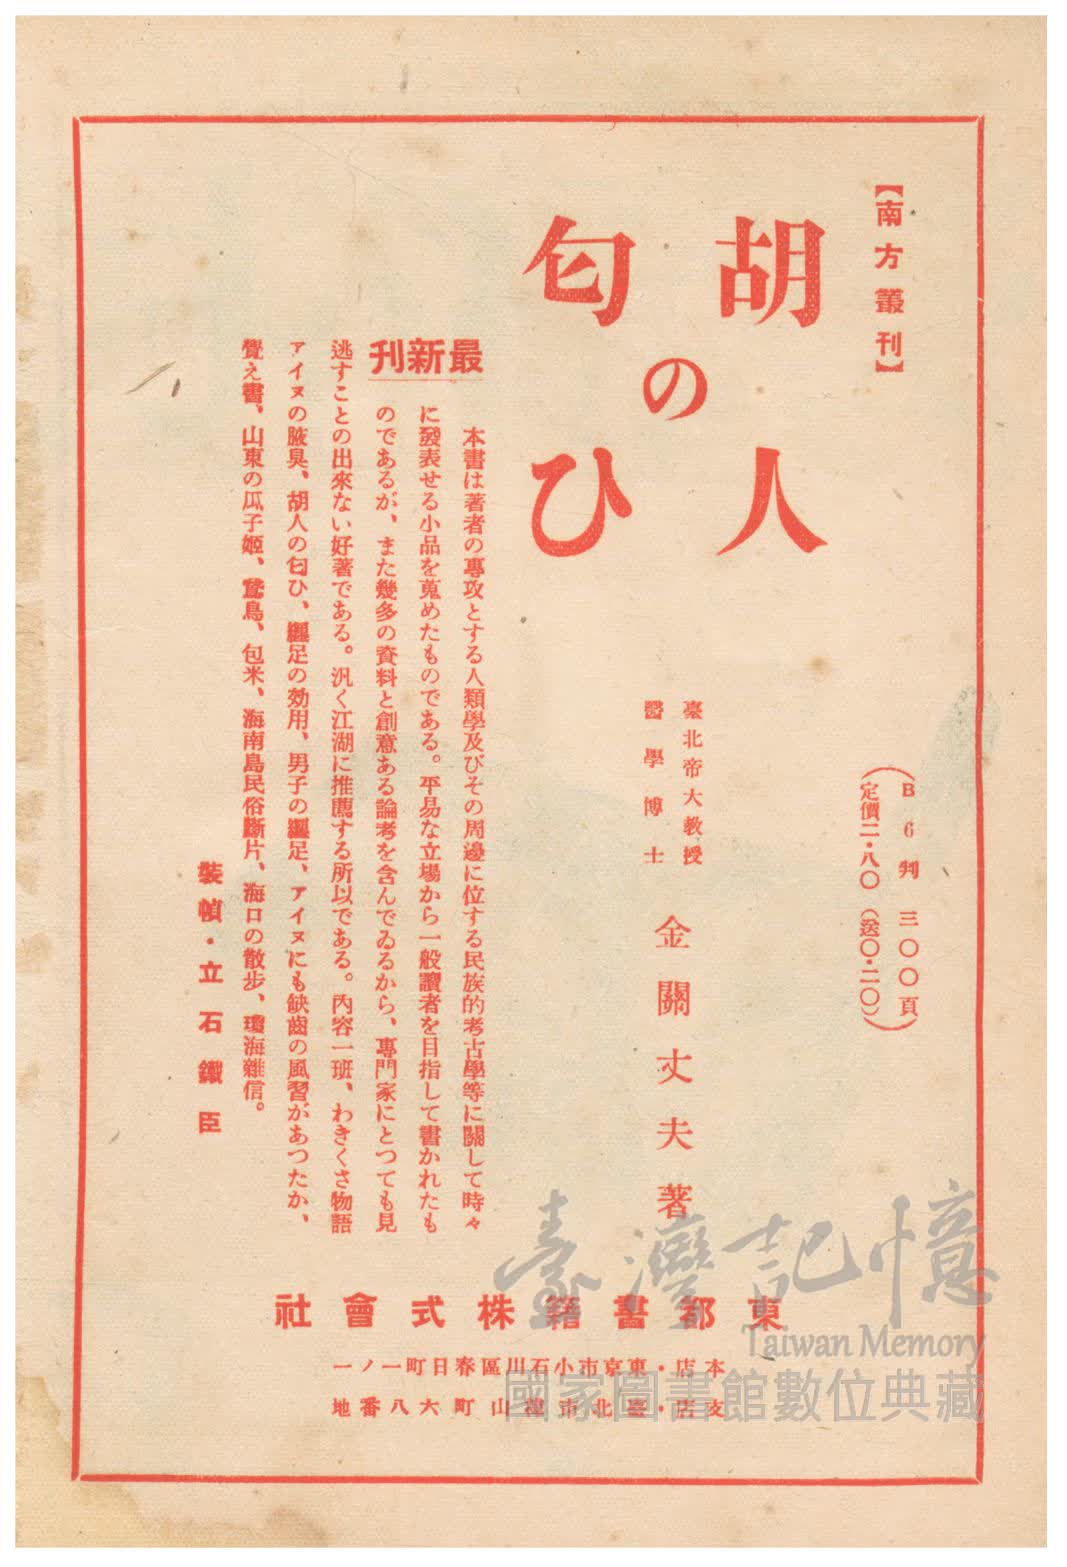 【南方叢刊】
胡人
の
匂ひ
(B6判 三〇〇頁)
(定價二・八〇 (送〇・二〇))
臺北帝大教授
醫學博士
金關丈夫著
最新刊
本書は著者の專攻とする人類學及びその周邊に位する民族的考古學等に關して時々
に發表せる小品を蒐めたものである。平易な立場から一般讀者を目指して書かれたも
のであるが、また幾多の資料と創意ある論考を含んでゐるから、專門家にとつても見
逃すことの出來ない好著である。汎く江湖に推薦する所以である。內容一班、わきくさ物語
アイヌの腋臭、胡人の匂ひ、纏足の効用、男子の纏足、アイヌにも缺齒の風習があつたか、
覺え書、山東の瓜子姬、鵞鳥、包米、海南島民俗斷片、海口の散步、瓊海雜信。
裝幀・立石鐵臣
東都書籍株式會社
本店・東京市小石川區春日町一ノ一
支店・臺北市福山町六八番地
臺灣記憶
Taiwan Memory
國家圖書館數位典藏